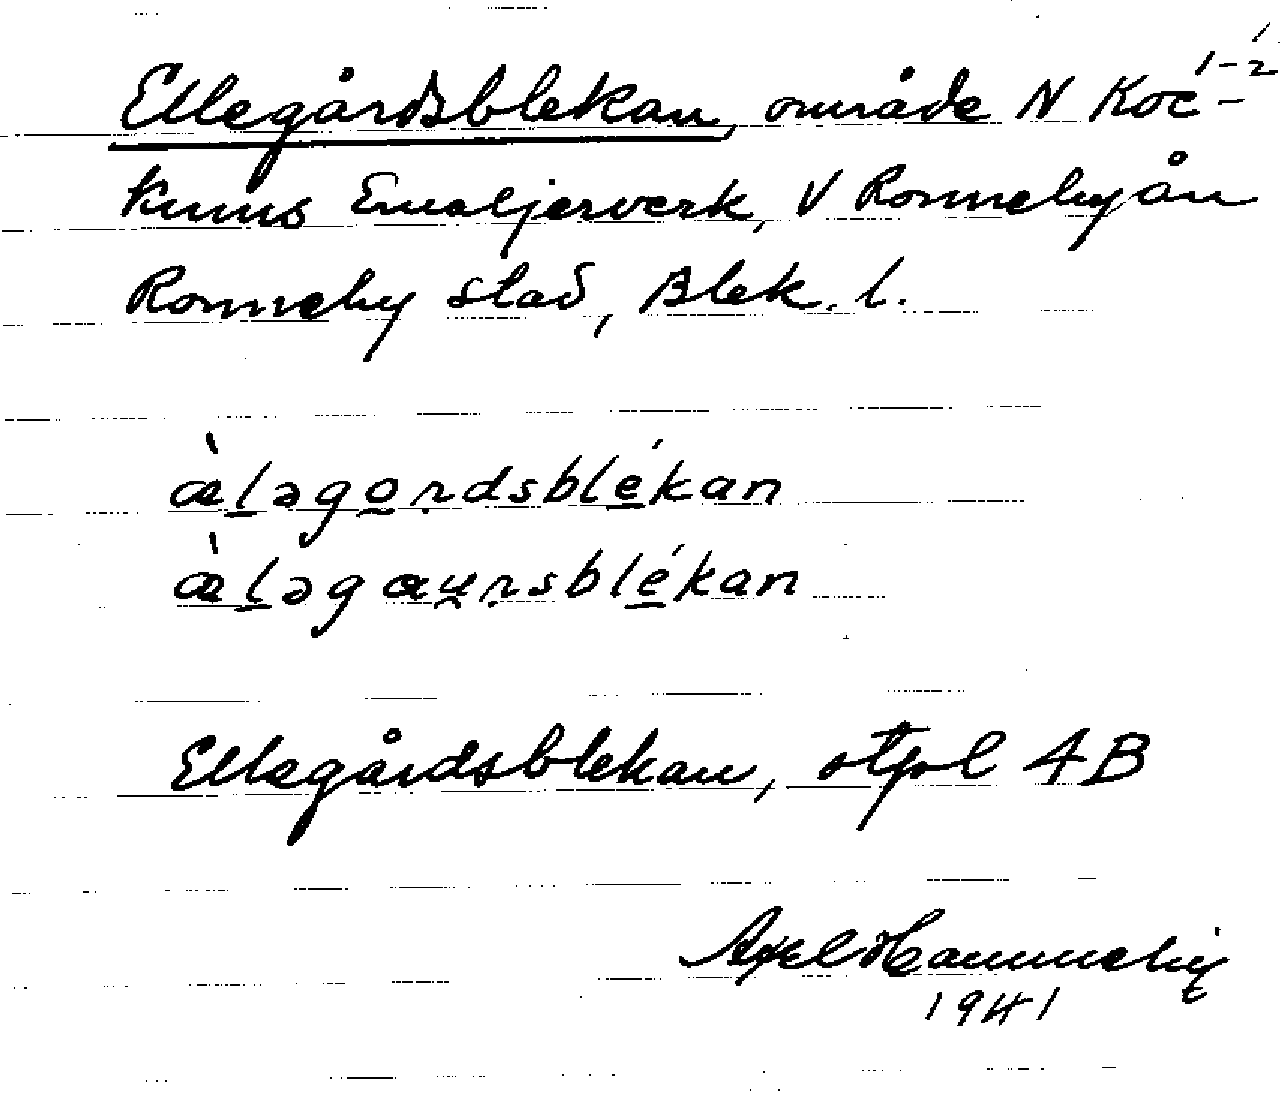 1-2
Ellegårdsblekan, område N Koc-
kums Emaljerverk, V Ronnebyån
Ronneby stad, Blek. l.
æ̀ləgo̰ṛdsblékan
æ̀ləgaṵṛsblékan
Ellegårdsblekan, stpl 4B
Axel Hammeby
1941